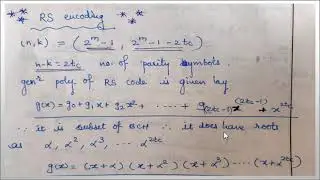 RS encoding
(n,k) = (2^m-1, 2^m-1-2tc)
n-k=2tc no. of parity symbols.
gen^r poly of RS code is given by
g(x) = g0+g1x+g2x²+ ---- + g(2tc-1)x^(2tc-1) + x^2tc
∴ it is subset of BCH ∴ it does have roots
as α, α², α³, ---- α^2tc
g(x) = (x+α)(x+α²)(x+α³)----(x+α^2tc)